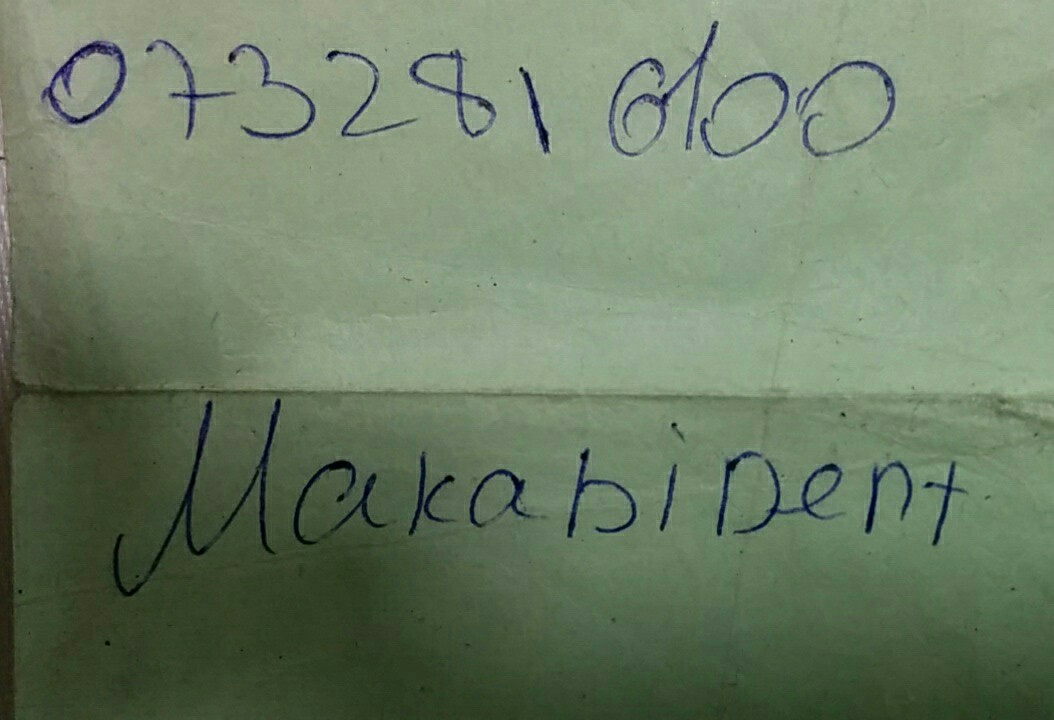 0732816100
MakabiDent